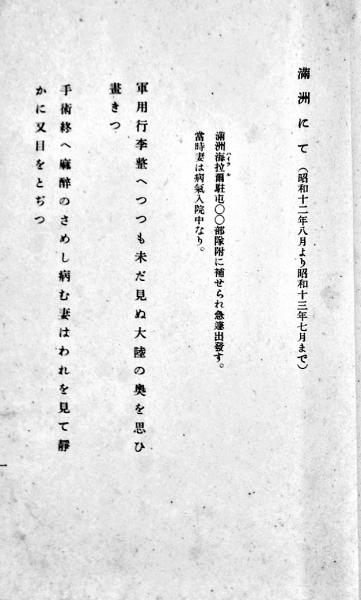 滿洲にて（昭和十二年八月より昭和十三年七月まで）
滿洲海拉爾駐屯〇〇部隊附に補せられ急遽出發す。
ハイラル
當時妻は病氣入院中なり。
軍用行李整へつつも未だ見ぬ大陸の奥を思ひ
畫きつ
手術終へ麻醉のさめし病む妻はわれを見て靜
かに又目をとぢつ